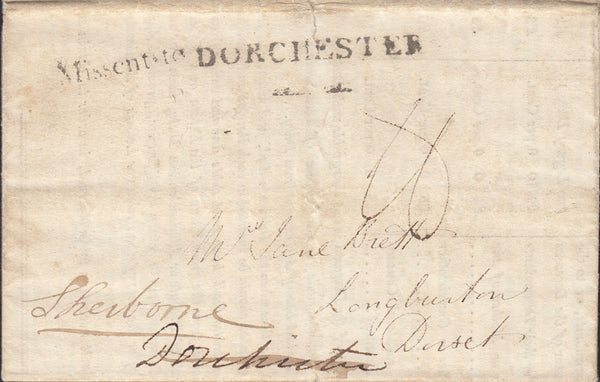 Missent-to DORCHESTER
Mrs Jane Brett
Longburton
Sherborne
Dorset
Dorchester